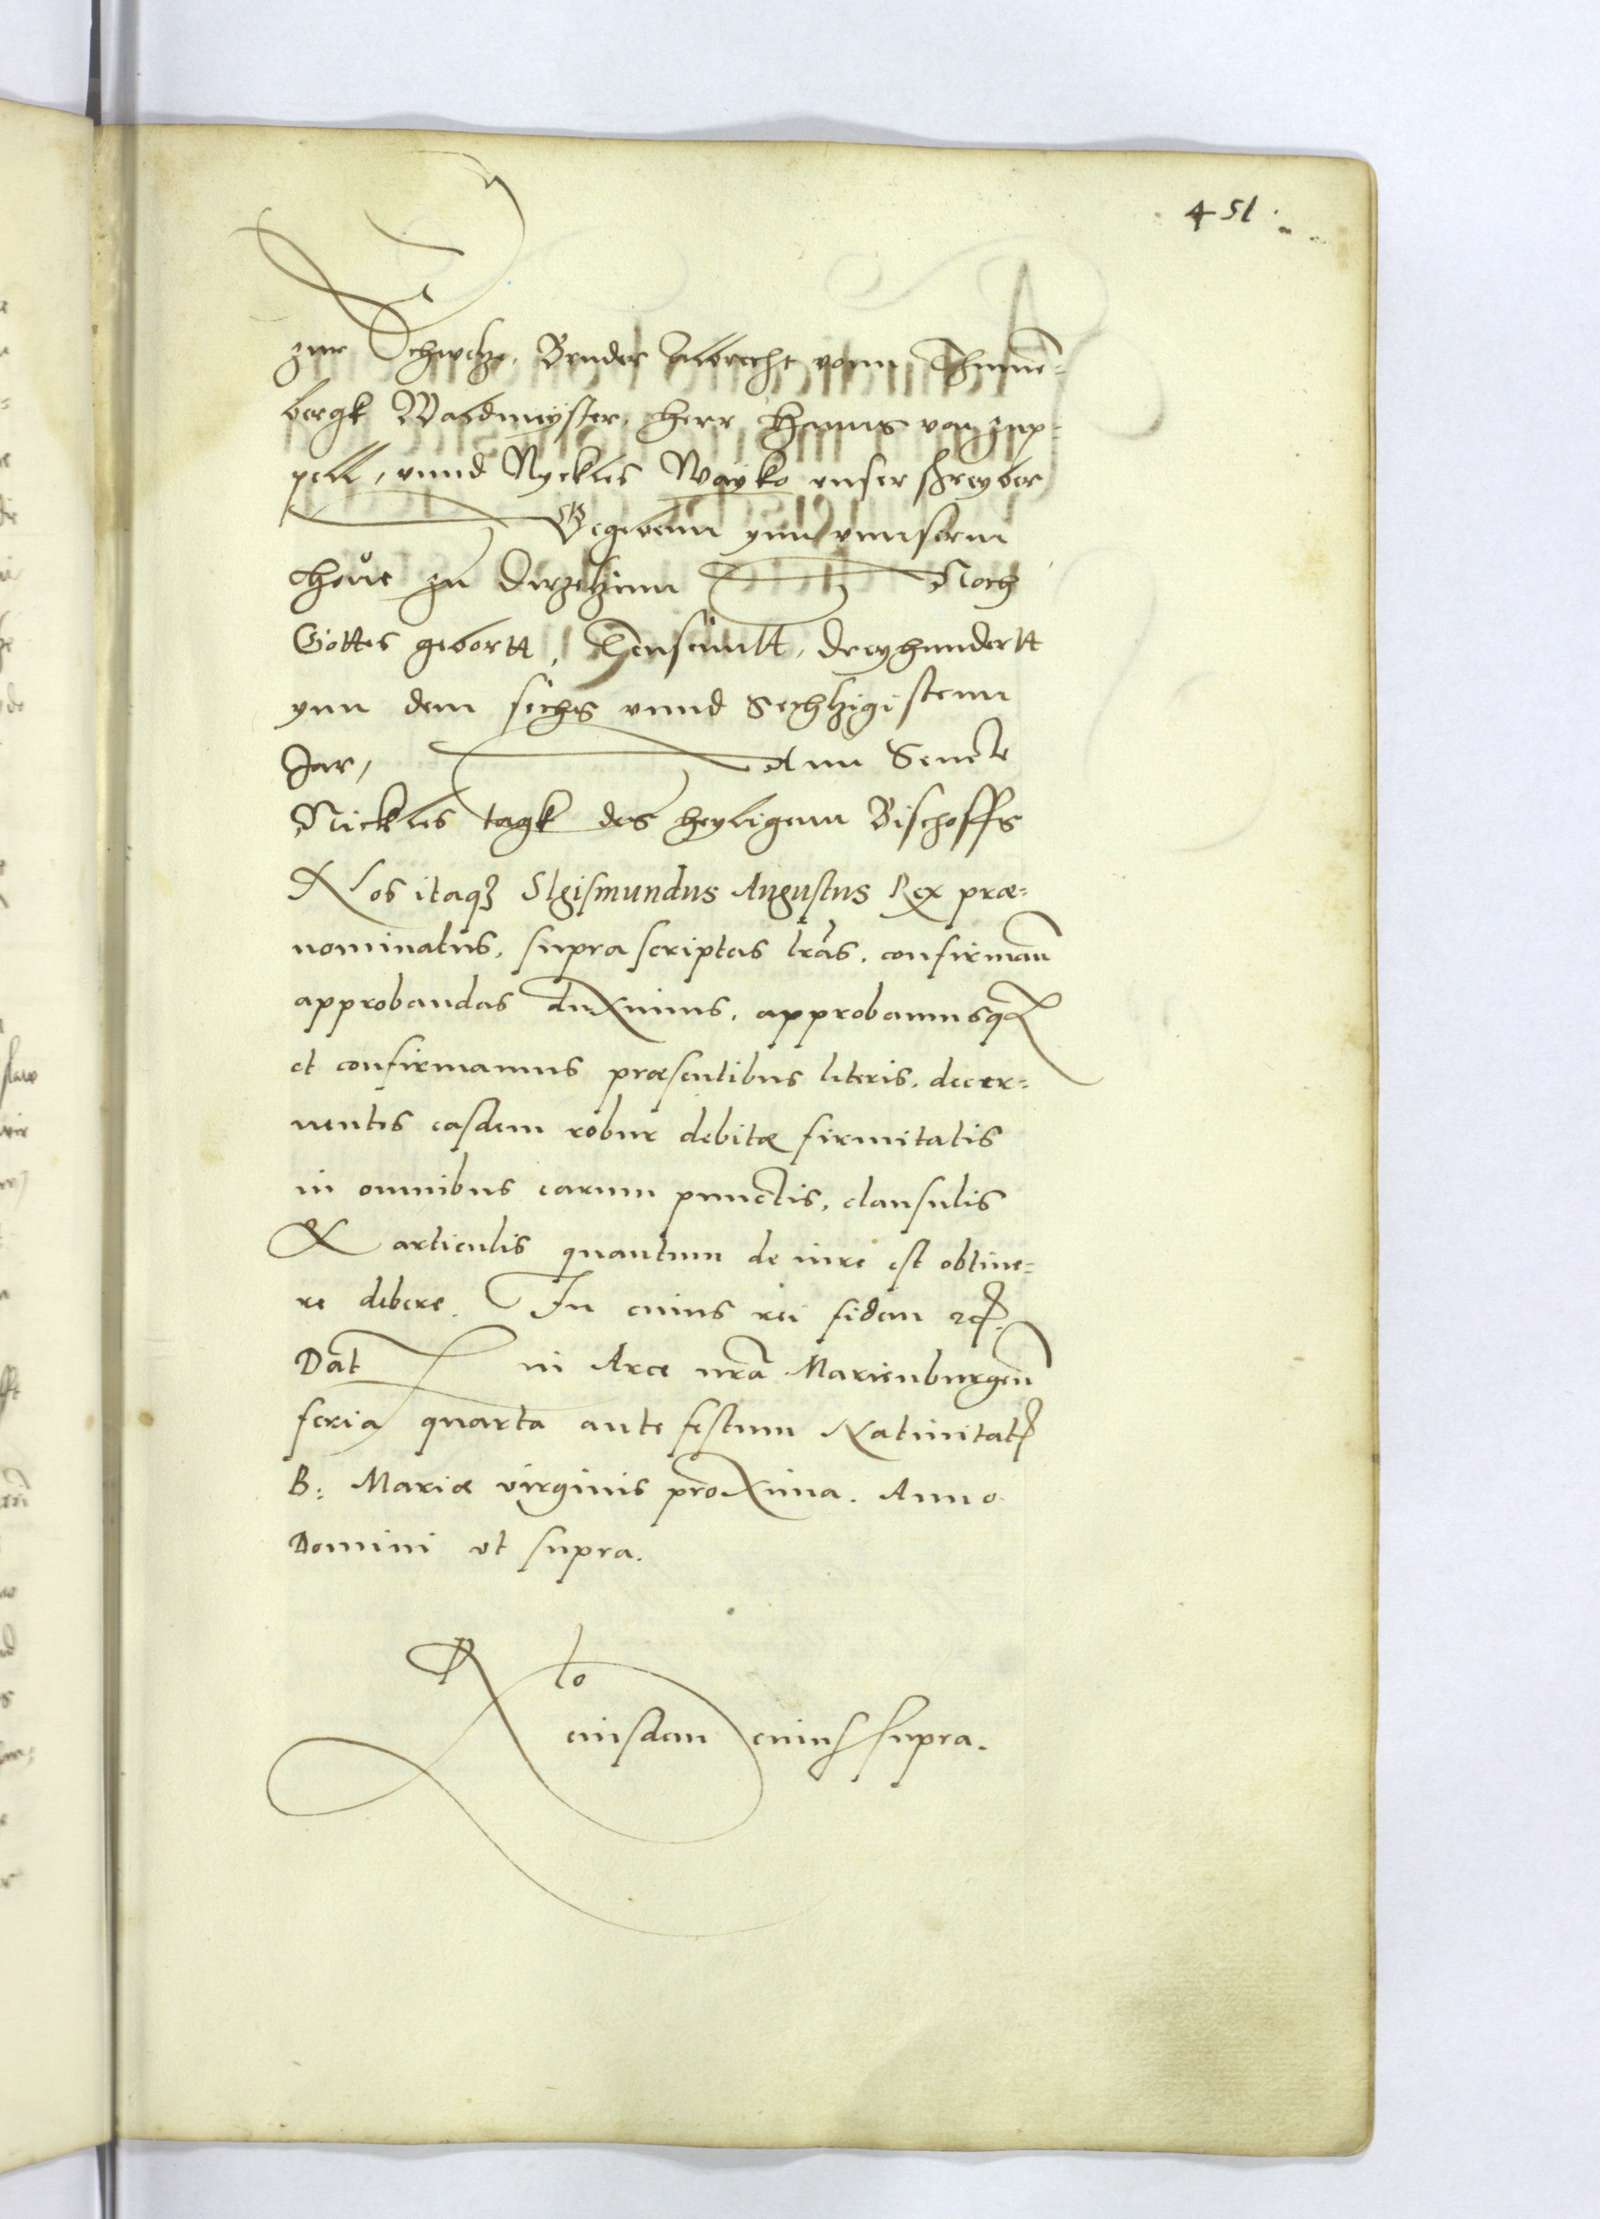 451
zur Schwetze, Bruder Albrecht vonn Thunne-
bergk Waldmeyster, herr Hanns von zup-
pell, vnnd Nyckles Wayko vnser schreyber
Gegebenn ynn vnnserm
hoůe zu Noch
Gottes gebortt, Thausenntt, dreyhundertt
ynn dem sechs vnnd Sechtzigistenn
Jar, Ann Sencte
Nickles tagk des heyligenn Bischoffs
Nos itaq3 SIgismundus Augustus Rex præ-
nominatus, suprascriptas lr̃as, confirmañ
approbandas duximus, approbamusq3
et confirmamus præsentibus literis, decer-
nentes easdem robur debitæ firmitatis
in omnibus earum punctis, clausulis
& articulis quantum de iure est obtine-
re debere. In cuius rei fidem etc.
Dat̃ in Arce nr̃a Marienburgeñ
feria quarta ante festum Natiuitatis
B: Mariæ virginis proxima. Anno
Domini vt supra.
Rlo
eiusdem cuius supra.